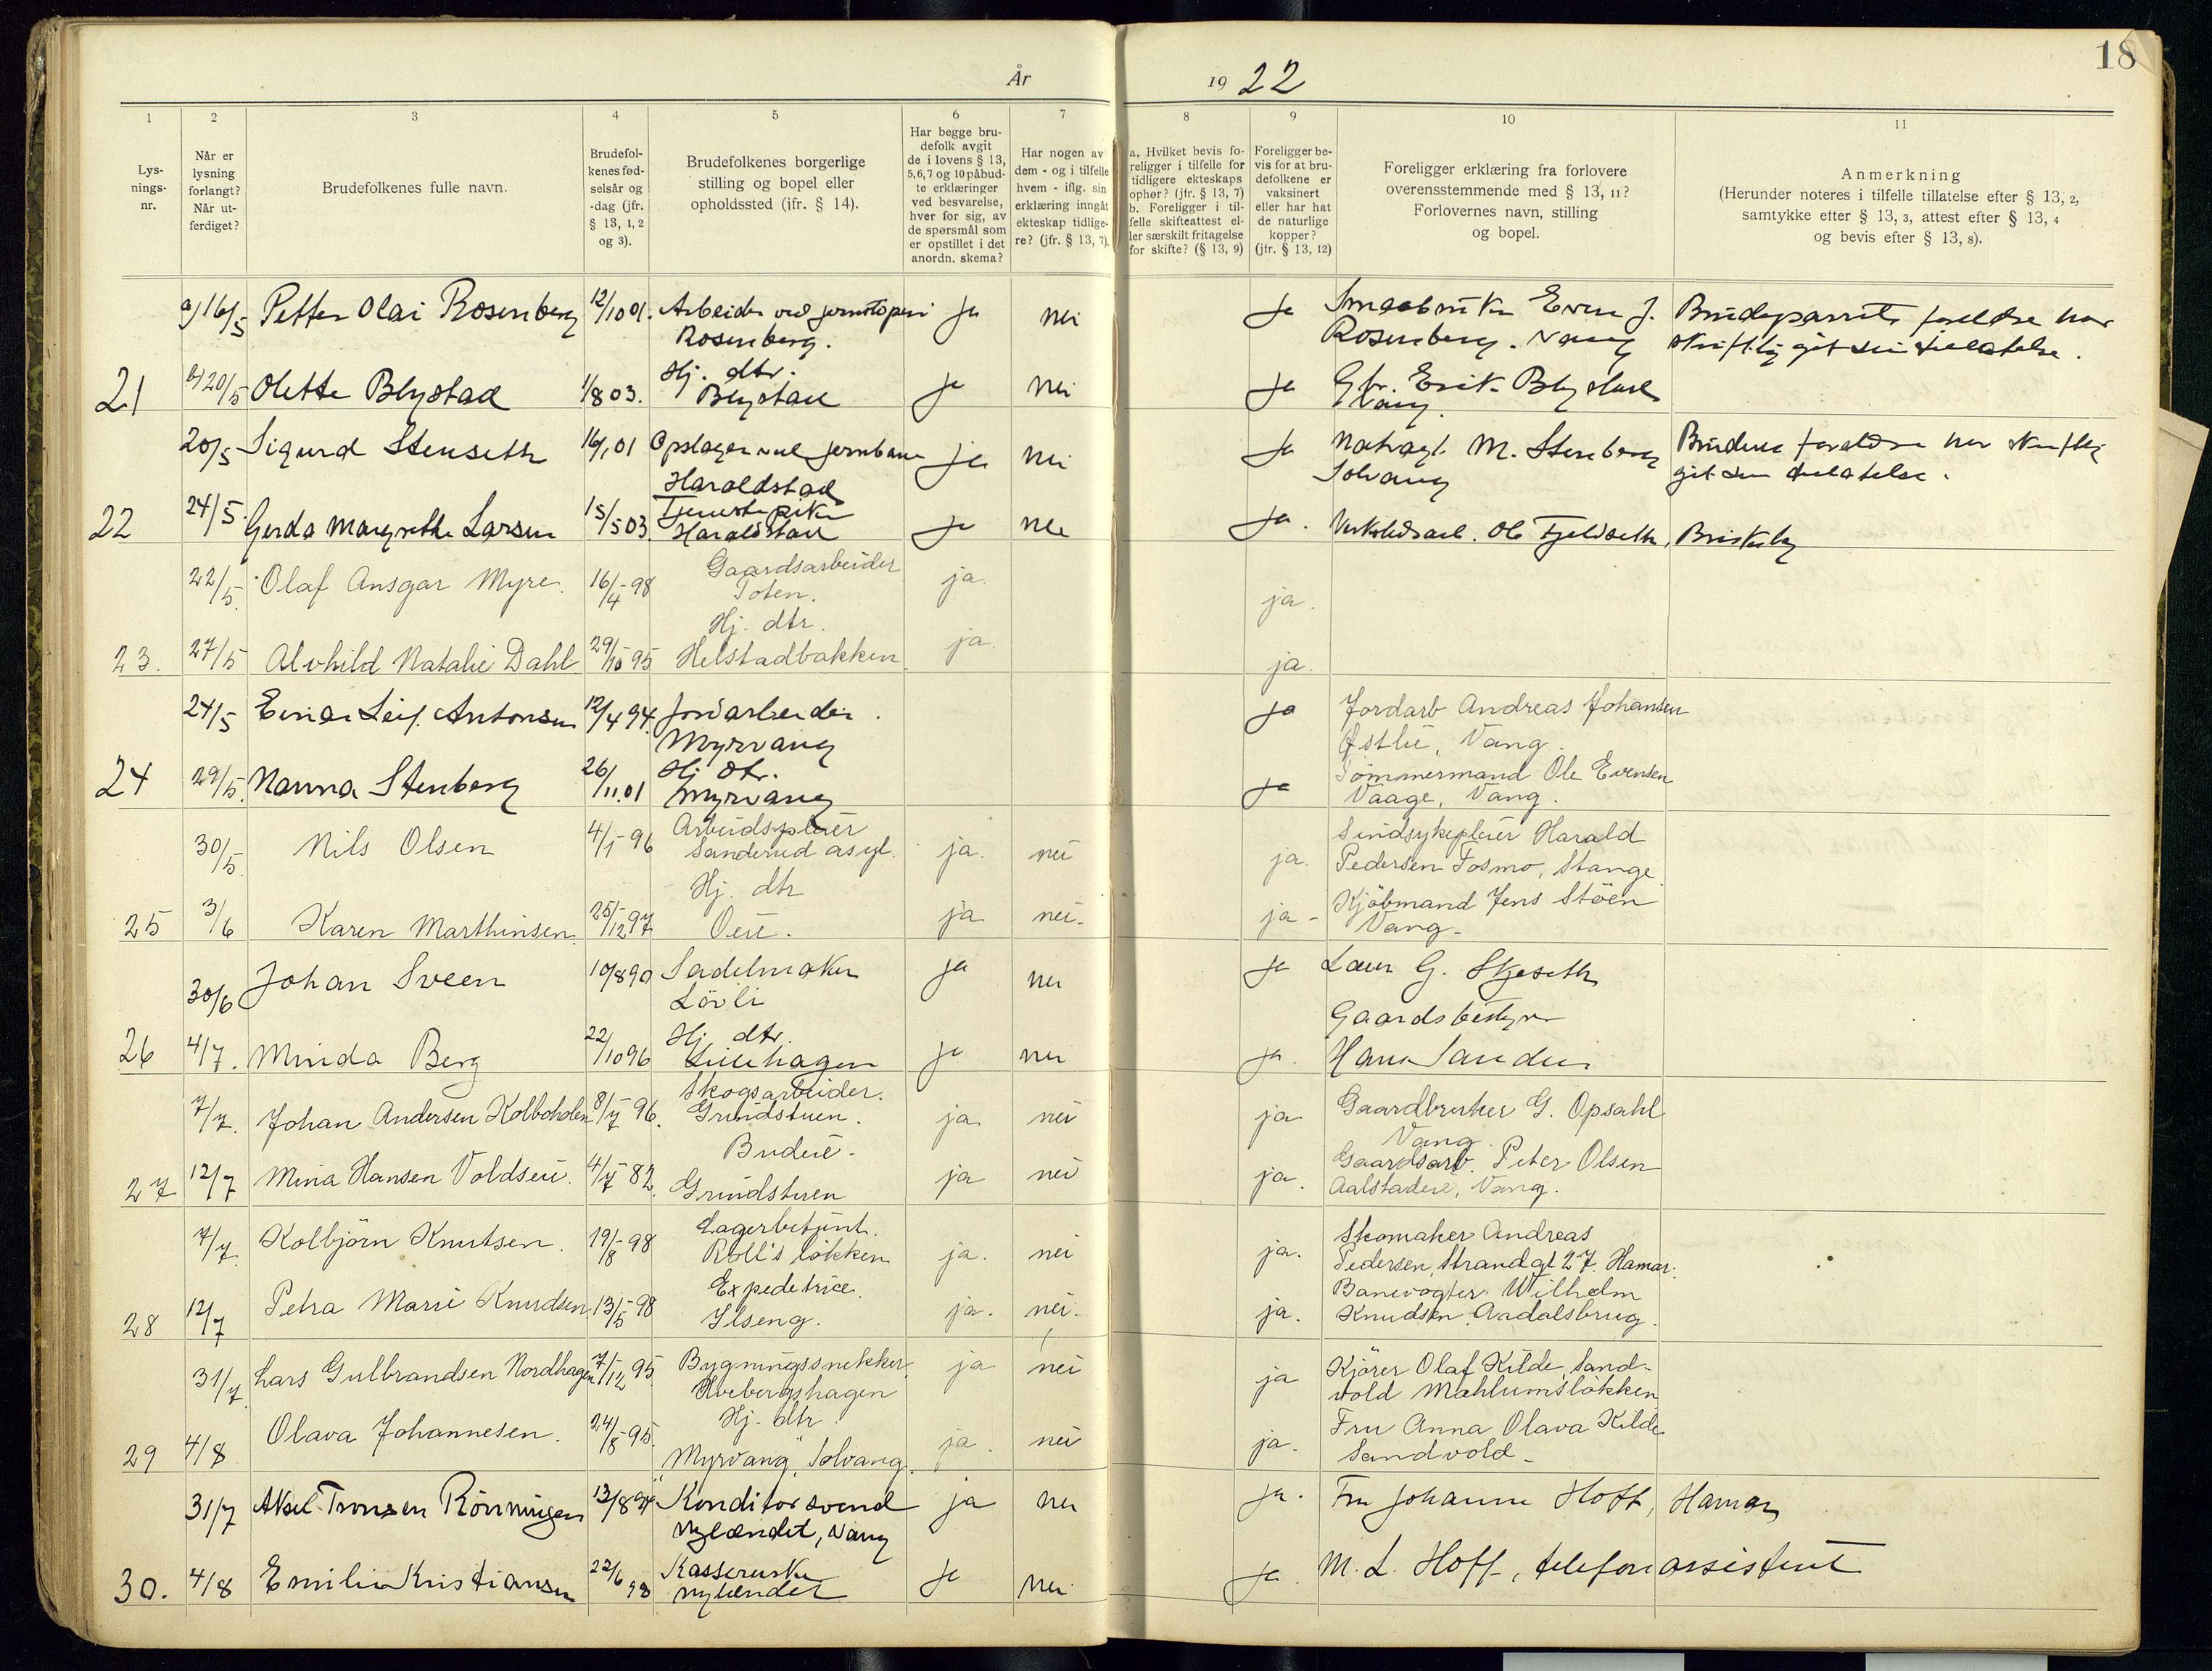 18
År 1922
1
2
3
4
5
6
7
8
9
10
11
Lys-
nings-
nr.
Når er
lysning
forlangt?
Når ut-
ferdiget?
Brudefolkenes fulle navn.
Brudefol-
kenes fød-
selsår og
-dag (jfr.
§ 13, 1, 2
og 3).
Brudefolkenes borgerlige
stilling og bopel eller
opholdssted (jfr. § 14).
Har begge bru-
defolk avgit
de i lovens § 13,
5,6,7 og 10 påbud-
te erklæringer
ved besvarelse,
hver for sig, av
de spørsmål som
er opstillet i det
anordn. skema?
Har nogen av
dem - og i tilfelle
hvem - iflg. sin
erklæring inngåt
ekteskap tidlige-
re? (jfr. § 13, 7).
a. Hvilket bevis fo-
religger i tilfelle for
tidligere ekteskaps
ophør? (jfr. § 13, 7)
b. Foreligger i til-
felle skifteattest el-
ler særskilt fritagelse
for skifte? (§ 13, 9)
Foreligger be-
vis for at bru-
defolkene er
vaksinert
eller har hat
de naturlige
kopper?
(jfr. § 13, 12)
Foreligger erklæring fra forlovere
overensstemmende med § 13, 11?
Forlovernes navn, stilling
og bopel.
Anmerkning
(Herunder noteres i tilfelle tillatelse efter § 13, 2,
samtykke efter § 13, 3, attest efter § 13, 4
og bevis efter § 13, 8).
16/5 Petter Olai Rosenberg 12/10 01. Arbeider ved jernstøperi ja nei ja Smaabruker Even J. Brudeparrets foreldre har
Rosenberg. Rosenberg. Vang skriftlig git sin tillatelse.
21 20/5 Olette Blystad 1/8 03. Hj. dtr. Blystad ja nei ja Gbr. Erik Blystad
Vang.
20/5 Sigurd Stenseth 16/1 01 Opslager ved jernbane ja nei ja M. Stenberg Brudens foreldre har skriftlig
Haraldstad Solvang git sin tillatelse.
22 24/5 Gerda Margrethe Larsen 15/5 03. Tjenestepike Haraldstad ja nei ja. Ole Fjeldseth, Briskeby
22/5. Olaf Ansgar Myre. 16/4-98 Gaardsarbeider ja. ja.
Toten.
23. 27/5 Alvhild Natalie Dahl 29/10-95 Hj. dtr. Helstadbakken ja. ja.
24/5 Einar Leif Antonsen 12/4 94. Jordarbeider. ja Jordarb Andreas Johansen
Myrvang Østlie, Vang.
24 29/5. Nanna Stenberg 26/11 01 Hj dtr. Myrvang ja Tömmermand Ole Evensen
Vaage, Vang.
30/5. Nils Olsen 4/1-96 Arbeidspleier ja. nei ja. Sindsykepleier Harald
Sanderud asyl. Pedersen Fosmo, Stange.
25 3/6 Karen Marthinsen. 25/12-97 Hj. dtr ja nei. ja - Kjöbmand Jens Stöen
Oeie. Vang.
30/6 Johan Sveen 10/8 90 Sadelmaker ja nei ja Laur G. Skjeseth
Lövli Gaardsbestyrer
26 4/7. Minda Berg 22/10 96 Hj dtr. Lillehagen ja nei ja. Hans Sandei
7/7. Johan Andersen Kolboholen 8/7-96. Skogsarbeider. ja nei ja Gaardbruker G. Opsahl
Grindstuen. Vang.
27 12/7 Mina Hansen Voldseie. 4/7-82. Budeie. ja nei ja. Gaardsarb. Peter Olsen
Grindstuen Aalstadeie, Vang.
7/7. Kolbjörn Knutsen. 19/8-98 Lagerbetjent. ja. nei ja. Skomaker Andreas
Roll's lökken Pedersen, Strandgt 27. Hamar.
28 12/7 Petra Marie Knudsen. 13/5-98 Expeditrice. ja. nei. ja. Banevogter Wilhelm
Ilseng. Knudsen. Aadalsbrug.
31/7. Lars Gulbrandsen Nordhagen 7/12-95. Bygningssnekker ja nei ja Kjörer Olaf Kilde, Sand-
Hvebergshagen vold Mæhlumslökken
29 4/8 Olava Johannesen. 24/8-95. Hj. dtr. ja. nei ja. Fru Anna Olava Kilde
"Myrvang", Solvang. Sandvold.
31/7 Aksel Tronsen Rönningen 13/8 94 Konditorsvend ja nei ja. Fru Johanne Hoff, Hamar
Nylændet, Vang
30. 4/8 Emilie Kristiansen 22/6 98 Kassererske ja nei ja. M. L. Hoff, telefonassistent
Nylændet